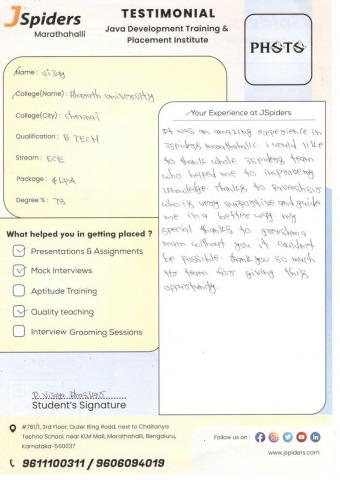 JSpiders
Marathahalli
TESTIMONIAL
Java Development Training &
Placement Institute
PHOTO
Name: Vijay
College(Name): Bharath university
College(City): chennai
Qualification: B TECH
Stream: ECE
Package: 4 LPA
Degree %: 73
What helped you in getting placed ?
Presentations & Assignments
Mock Interviews
Aptitude Training
Quality teaching
Interview Grooming Sessions
Your Experience at JSpiders
It was an amazing experience in
Jspiders marathahalli. i would like
to thank whole Jspiders team
who helped me to improving
knowledge. thanks to
who is very supportive and guide
me in a better way. my
special thanks to
mam without you it
be possible. thank you so much
team for giving this
opportunity.
Student's Signature
#761/1, 3rd Floor, Outer Ring Road, next to Chaitanya
Techno School, near KLM Mall, Marathahalli, Bengaluru,
Karnataka-560037
9611100311 / 9606094019
Follow us on:
www.jspiders.com